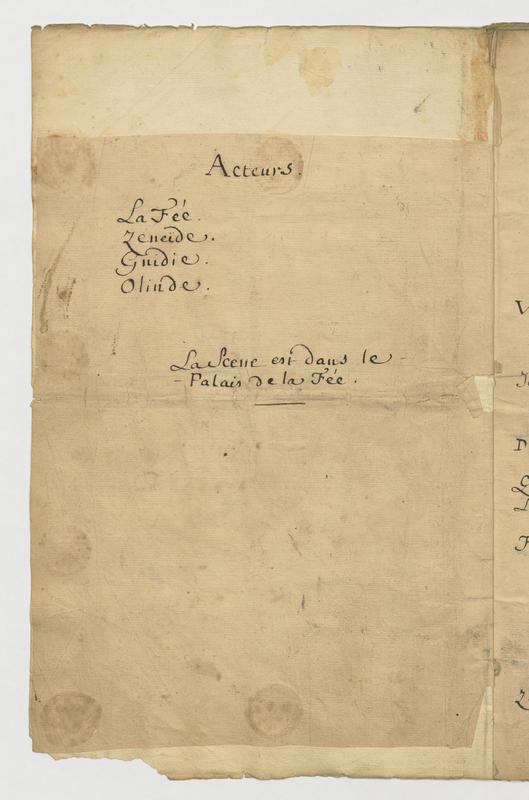 Acteurs.
La Fée.
Zeneide.
Gnidie.
Olinde.
La Scene est dans le -
- Palais de la Fée.